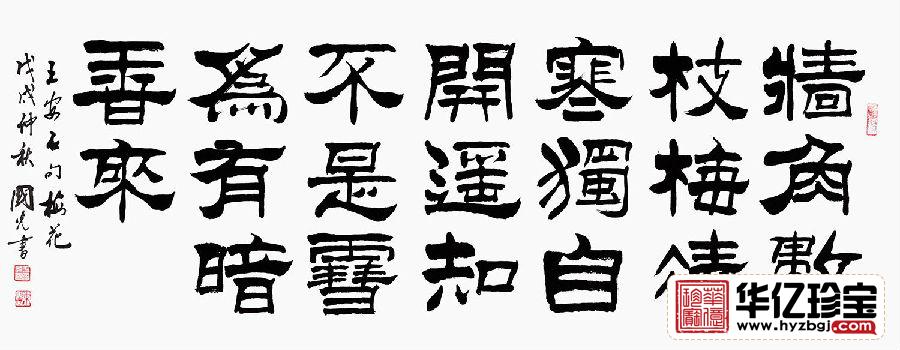 牆角數
枝梅凌
寒獨自
開遥知
不是雪
爲有暗
香來
王安石句梅花
戊戌仲秋國光書
华亿珍宝
www.hyzbgj.com